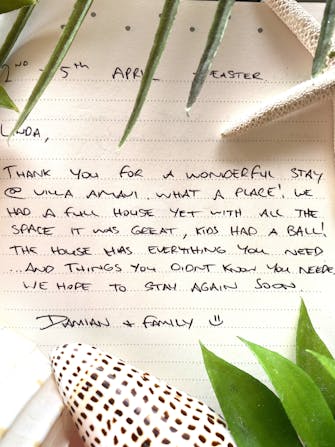 2ND - 5TH APRIL - EASTER
LINDA,
THANK YOU FOR A WONDERFUL STAY
@ VILLA AMAVI. WHAT A PLACE! WE
HAD A FULL HOUSE YET WITH ALL THE
SPACE IT WAS GREAT, KIDS HAD A BALL!
THE HOUSE HAS EVERYTHING YOU NEED
...AND THINGS YOU DIDNT KNOW YOU NEEDED.
WE HOPE TO STAY AGAIN SOON.
DAMIAN + FAMILY ☺